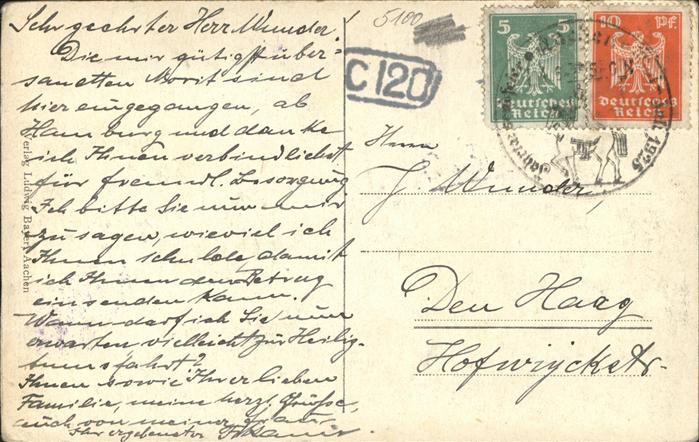 Sehr geehrter Herr Wunder.
Die mir gütigst über-
sandten sind
hier eingegangen, ab
Hamburg und danke
ich Ihnen verbindlichst
für freundl. Besorgung
Ich bitte Sie nun mir
zu sagen, wieviel ich
Ihnen schulde damit
ich Ihnen den Betrag
einsenden kann.
Wann darf ich Sie nun
erwarten vielleicht zur Heilig-
tumsfahrt?
Ihnen sowie Ihrer lieben
Familie, meine herzl. Grüsse,
auch von meiner Frau.
Ihr ergebenster
Verlag Ludwig Bayer, Aachen
5100
C 120
5 5
Deutsches
Reich
10 Pf.
Deutsches
Reich
1925
Herrn
J. Wunder,
Den Haag
Hofwijckstr.